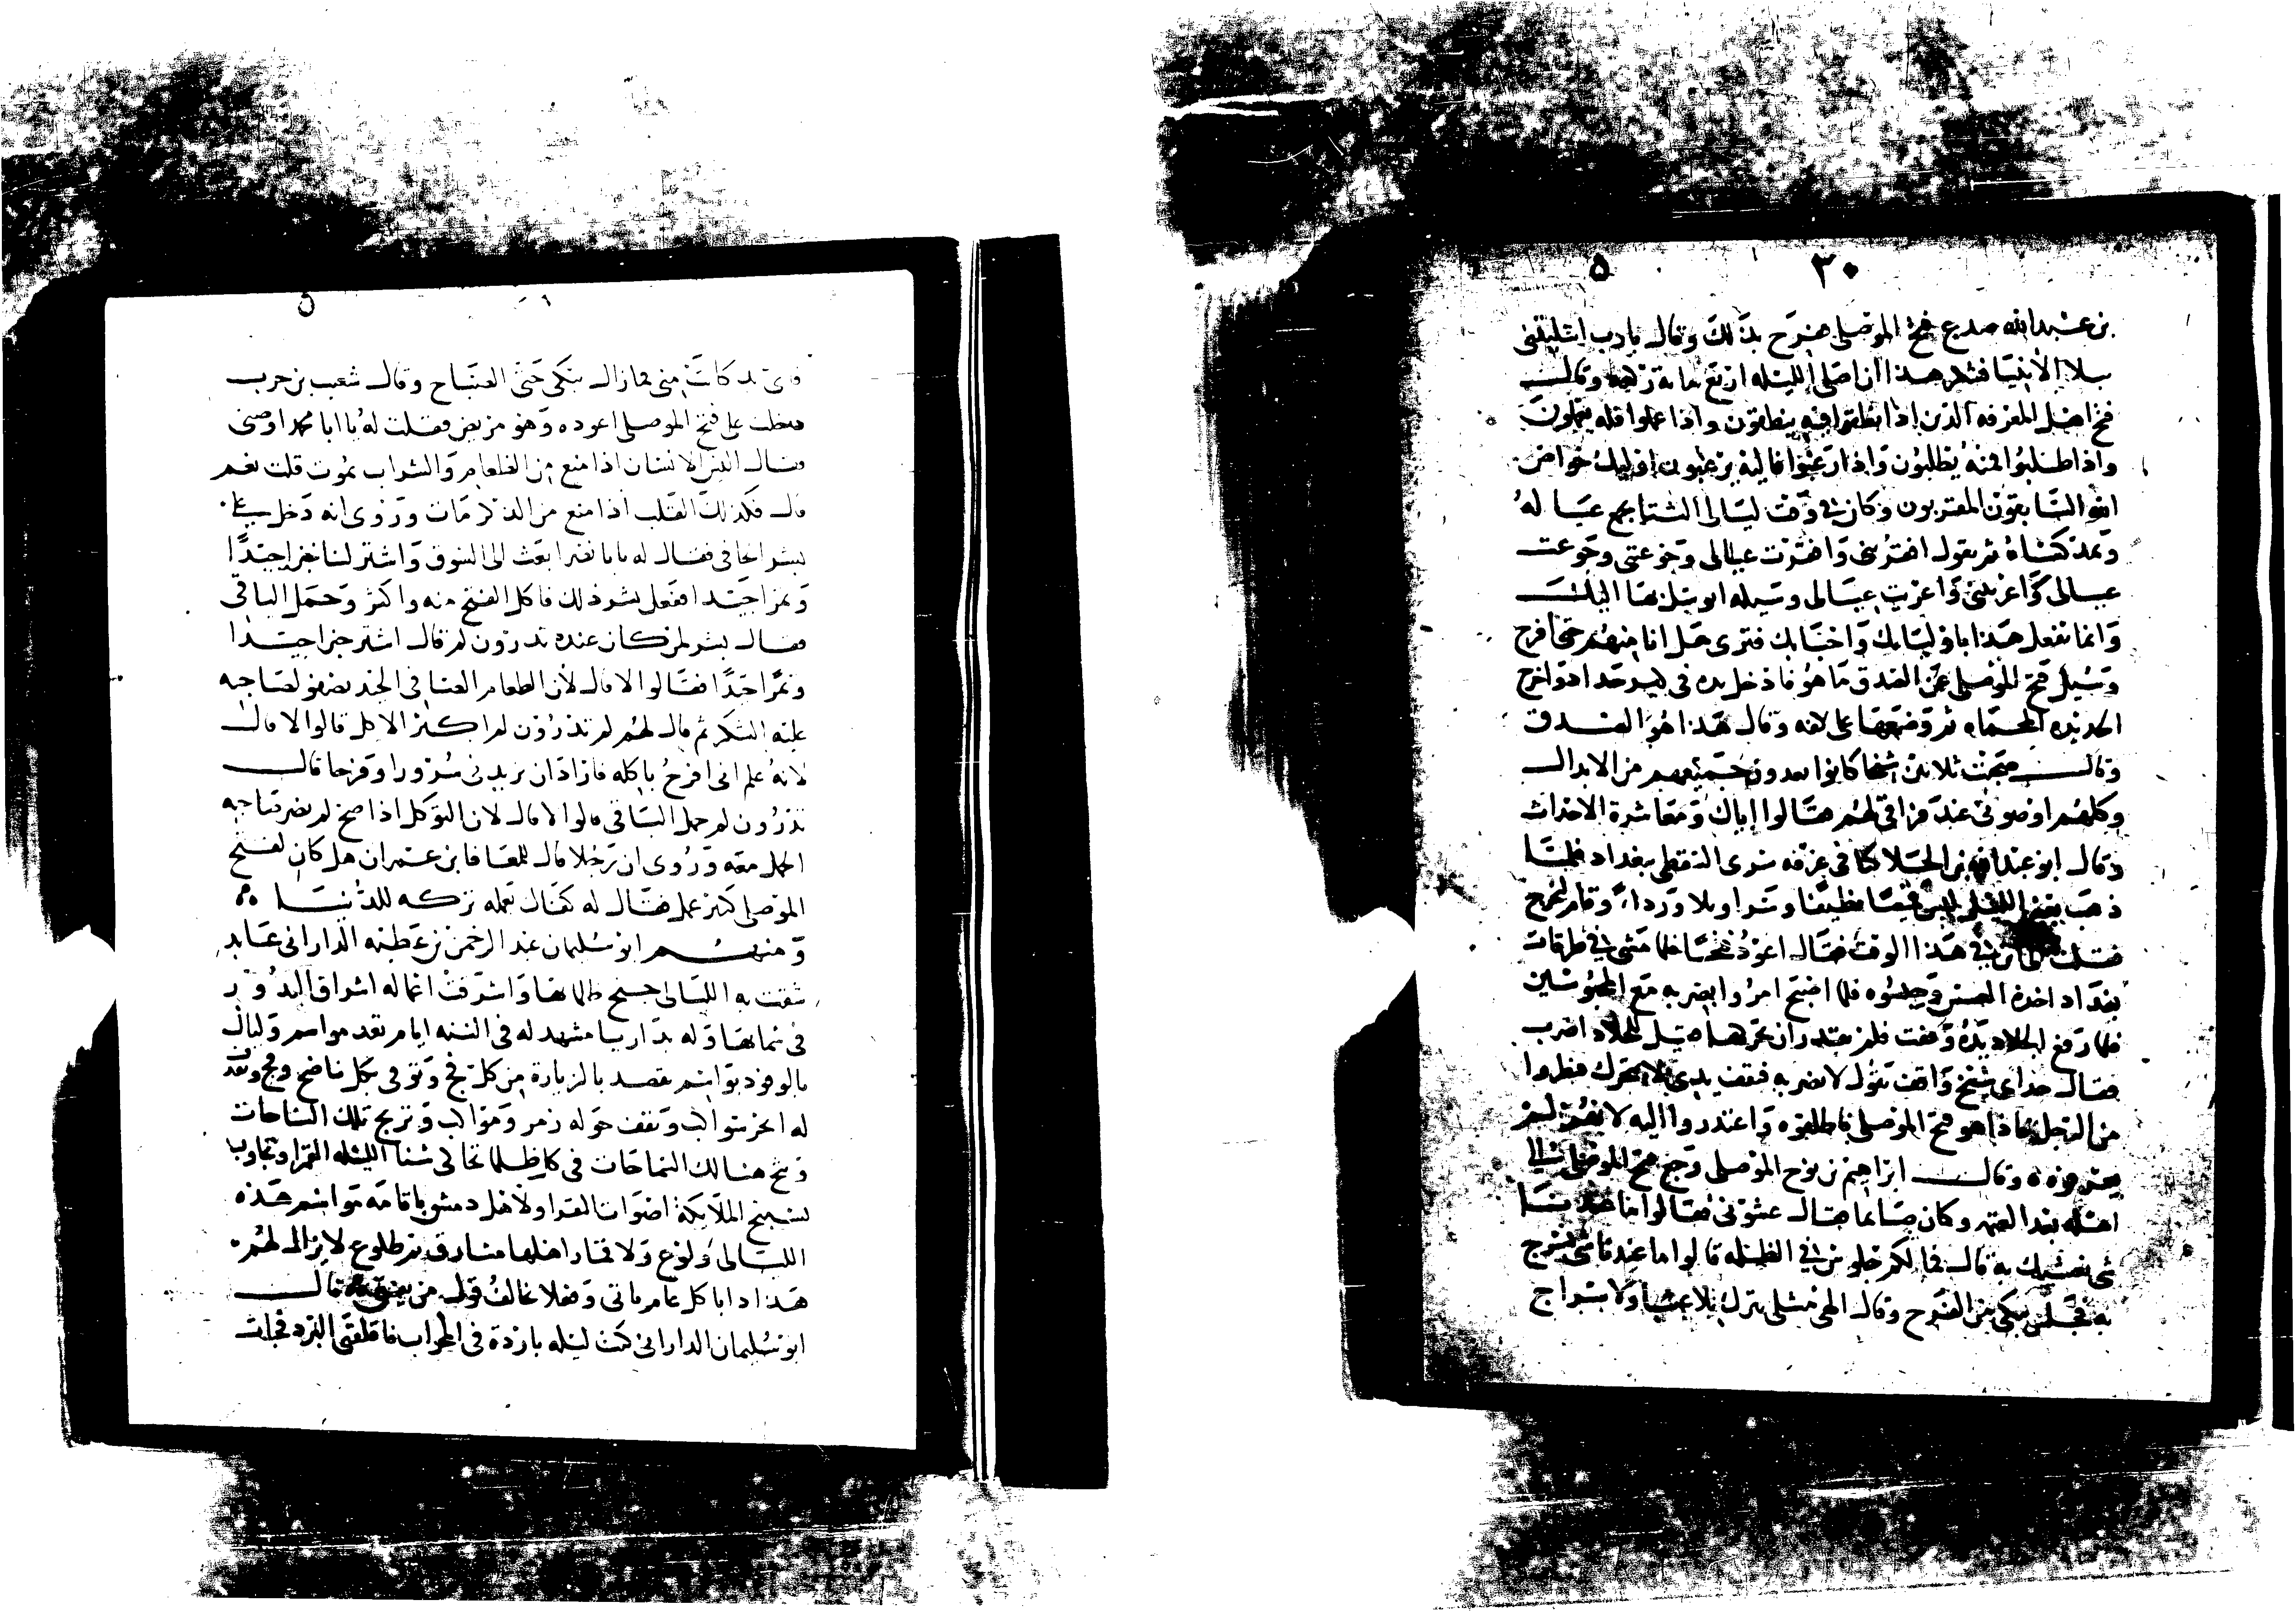 ٣٠ ٥
بن عبد الله صدع فتح الموصلي ففرح بذلك وقال يا رب ابتليتني
ببلاء الأنبيا فشكر هذا ان اصلي الليله اربع ماية ركعه وقال
فتح اهل المعرفه الذين اذا نطقوا فبه ينطقون واذا عملوا فله يعملون
واذا طلبوا فمنه يطلبون واذا رغبوا فاليه يرغبون اوليك خواص
الله السابقون المقربون وكان في وقت ليالي الشتا يجمع عياله
ويمد كساه ثم يقول افقرتني وافقرت عيالي وجوعتني وجوعت
عيالي واعريتني واعريت عيالي وسيله اتوسل بها اليك
وانما تفعل هذا باوليايك واحبابك فترى هل انا منهم حتى افرح
وسيل فتح الموصلي عن الصدق ما هو فادخل يده في كير حداد واخرج
الحديده المحماه ثم وضعها على كفه وقال هذا هو الصدق
وقال صحبت ثلاثين شيخا كانوا يعدون جميعهم من الابدال
وكلهم اوصوني عند فراقي لهم فقالوا إياك ومعاشرة الاحداث
وقال ابو عبد الله بن الجلا كنا في غرفه سري السقطي ببغداد فلما
ذهب بعض الليل لبس قميصا نظيفا وسراويلا ورداء وقام ليخرج
فقلت الى اين في هذا الوقت فقال اعود فتحا فلما مشى في طرقات
بغداد اخذه العسس وحبسوه فلما اصبح امروا بضربه مع المحبوسين
فلما رفع الجلاد يده وقفت فلم يقدر ان يحركها فقيل للجلاد اضرب
فقال حداي شيخ واقف يقول لا تضربه فتقف يدي لا تتحرك فنظروا
من الرجل فاذا هو فتح الموصلي فاطلقوه واعتذروا اليه لانهم لم
يعرفوه وقال ابراهيم بن نوح الموصلي رجع فتح الموصلي الى
اهله بعد العتمه وكان صايما فقال عشوني فقالوا ما عندنا
شي نعشيك به قال فما لكم جلوس في الظلمه قالوا ما عندنا شي نسرج
به فجلس يبكي من الفرح وقال الهي مثلي يترك بلا عشا ولا سراج
٥
فاي يد كانت مني فما زال يبكي حتى الصباح وقال شعيب بن حرب
دخلت على فتح الموصلي اعوده وهو مريض فقلت له يا ابا محمد اوصني
فقال اليس الانسان اذا منع من الطعام والشراب يموت قلت نعم
قال فكذلك القلب اذا منع من الذكر مات وروي انه دخل على
بشر الحافي فقال له يا با نصر ابعث الى السوق واشتر لنا خبزا جيدا
وتمرا جيدا ففعل بشر ذلك فاكل الفتح منه واكثر وحمل الباقي
فقال بشر لمن كان عنده تدرون لم قال اشتر خبزا جيدا
وتمرا جيدا فقالوا لا قال لأن الطعام الصافي الجيد يصفو لصاحبه
عليه الشكر ثم قال لهم لم تدرون لم اكثر الاكل قالوا لا قال
لانه علم اني افرح باكله فاراد ان يزيدني سرورا وفرحا قال
تدرون لم حمل الباقي قالوا لا قال لان التوكل اذا صح لم يضر صاحبه
الحمل معه وروي ان رجلا قال للمعافا بن عمران هل كان لفتح
الموصلي كبير عمل فقال له كفاك بعمله تركه للدنيا
ومنهم ابو سليمان عبد الرحمن بن عطيه الداراني عابد
شقت به الليالي جنح ظلمايها واشرقت اعماله اشراق البدور
في سمايها وله بداريا مشهد له في السنه ايام تعد مواسم وليال
بالوفود بواسم يقصد بالزيارة من كل فج وتوفى بكل ناضح وفج وتقد
له اخر شو الب وتقف حوله زمر ومواكب وتريح تلك الساحات
وتتح هنالك السماحات في كل ظلما تخالي سنا الليله القمرا وتجاوب
تسبيح الملايكة اصوات القرا ولاهل دمشق باقامه مواسم هذه
الليالي ولوع ولاقمار اهلها مشارق من طلوع لا يزال لهم
هذا دابا كل عام ياتي وفعلا يخالف قول من قال
ابو سليمان الداراني كنت ليله باردة في المحراب فاقلقني البرد فخبات